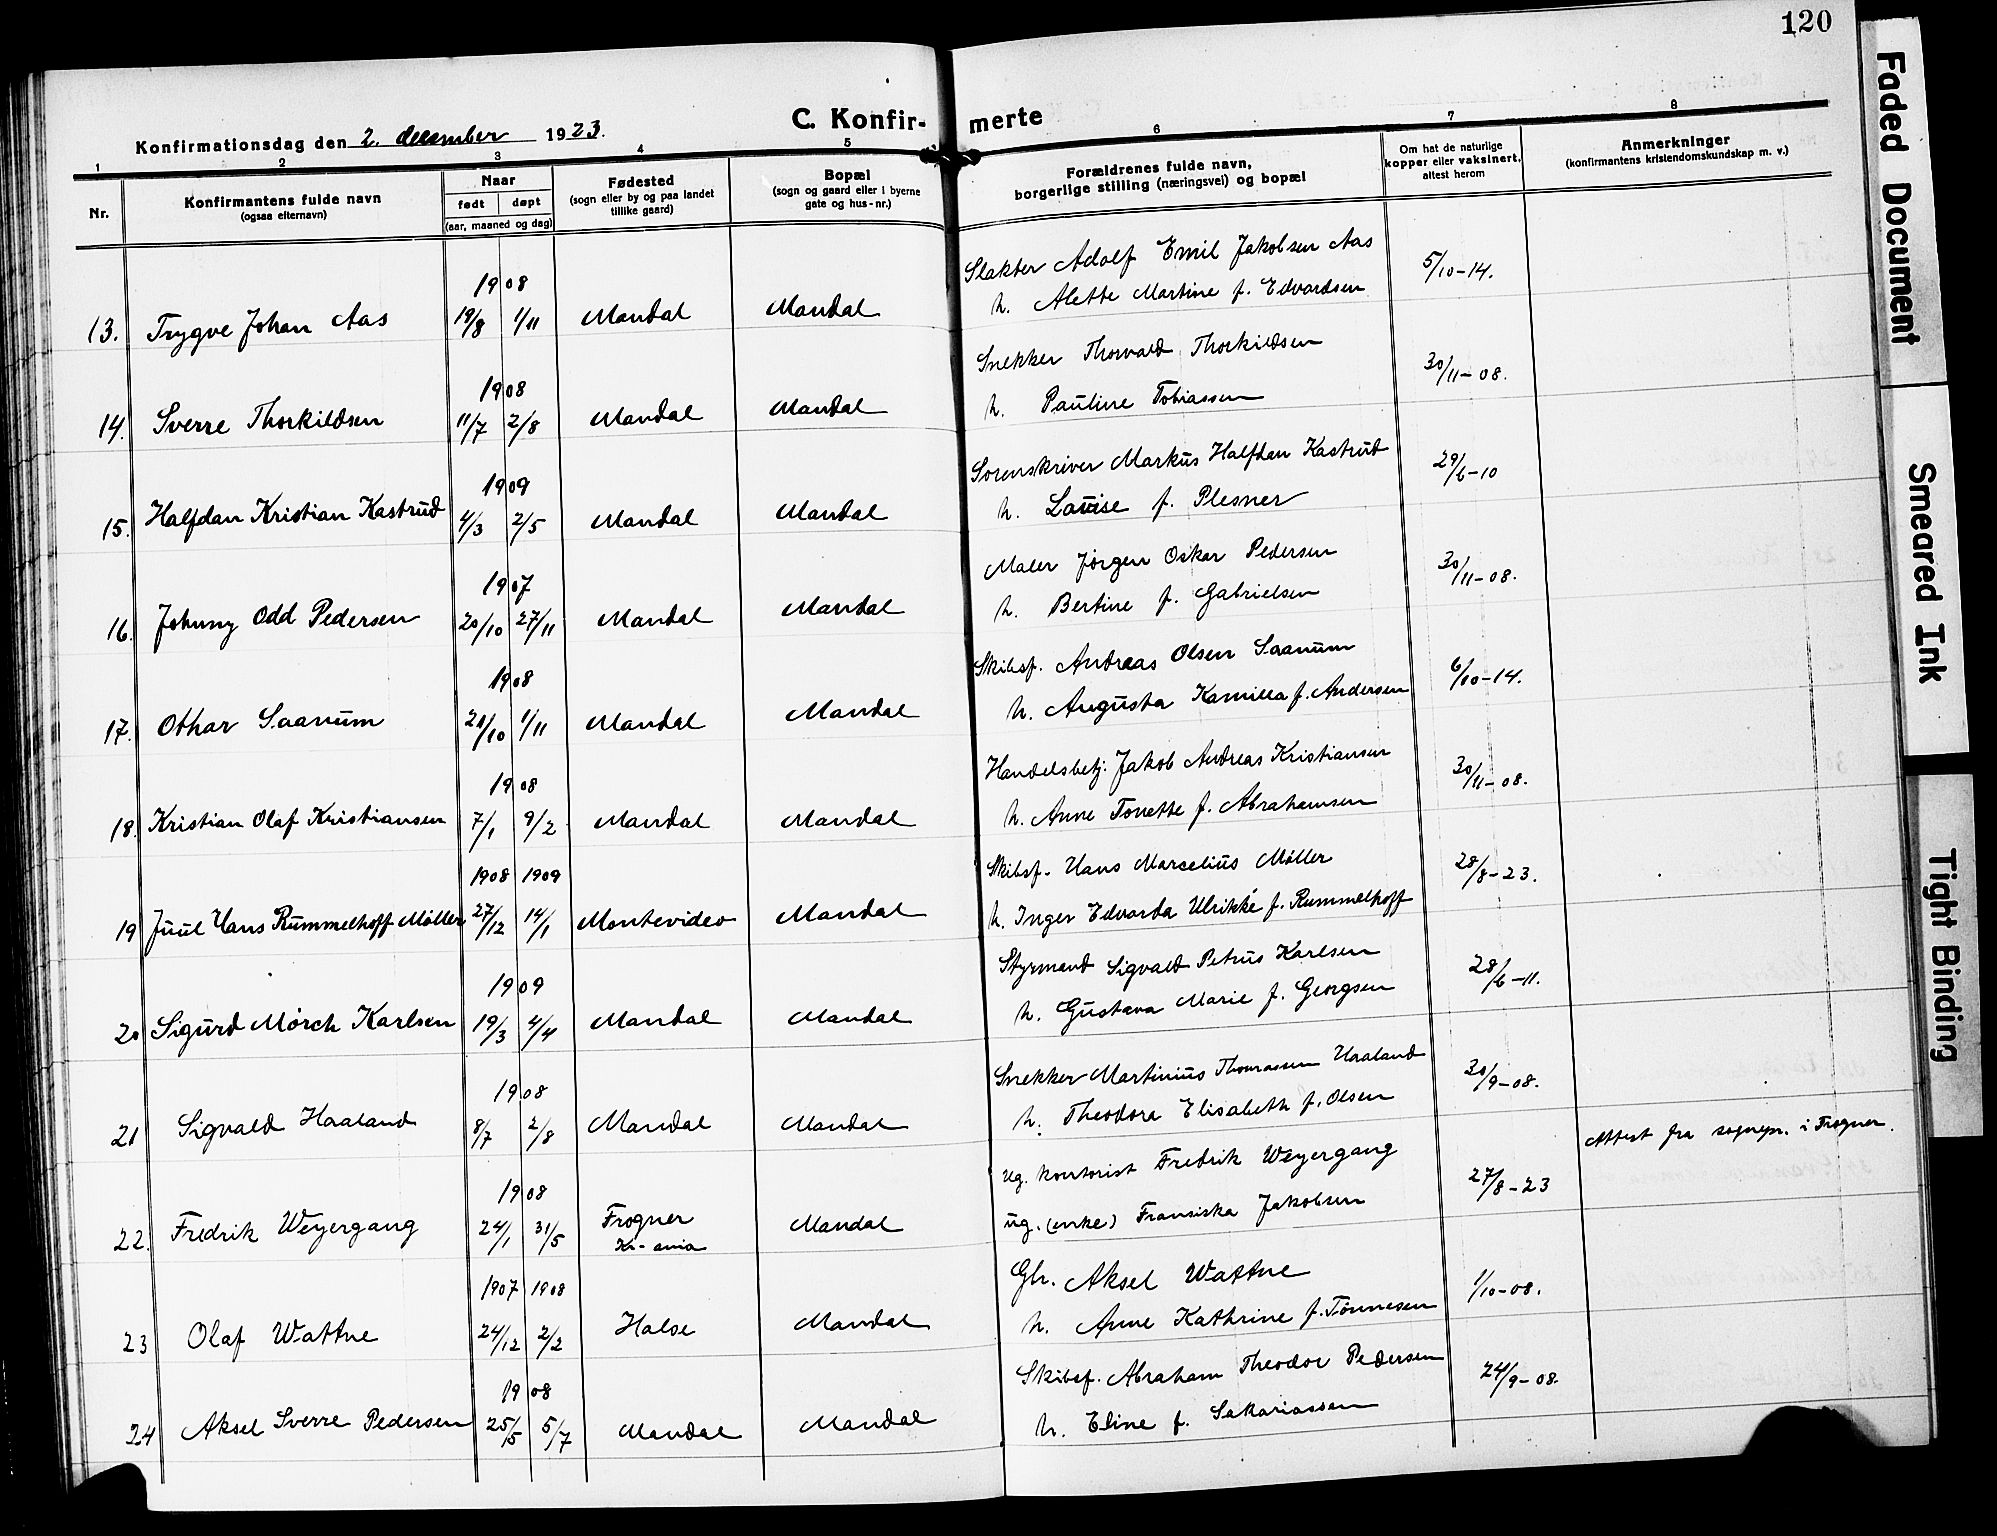 120
Konfirmationsdag den 2. december 1923.
C. Konfirmerte
1 2 3 4 5 6 7 8
Nr.
Konfirmantens fulde navn
(ogsaa efternavn)
Naar
født døpt
(aar, maaned og dag)
Fødested
(sogn eller by og paa landet
tillike gaard)
Bopæl
(sogn og gaard eller i byerne
gate og hus-nr.)
Forældrenes fulde navn,
borgerlige stilling (næringsvei) og bopæl
Om hat de naturlige
kopper eller vaksinert,
attest herom
Anmerkninger
(konfirmantens kristendomskundskap m. v.)
1908 Slakter Adolf Emil Jakobsen Aas 5/10-14.
13. Trygve Johan Aas 19/8 1/11 Mandal Mandal h. Alette Martine f. Edvardsen
1908 Snekker Thorvald Thorkildsen 30/11-08.
14. Sverre Thorkildsen 11/7 2/8 Mandal Mandal h. Pauline Tobiassen
1909 Sorenskriver Markus Halfdan Kastrud 29/6-10
15. Halfdan Kristian Kastrud 4/3 2/5 Mandal Mandal h. Louise f. Plesner
1907 Maler Jørgen Oskar Pedersen 30/11-08.
16. Johnny Odd Pedersen 20/10 27/11 Mandal Mandal h. Bertine f. Gabrielsen
1908 Skibsf. Andreas Olsen Saanum 6/10-14.
17. Othar Saanum 20/10 1/11 Mandal Mandal h. Augusta Kamilla f. Andersen
1908 Handelsbetj. Jakob Andreas Kristiansen 30/11-08.
18. Kristian Olaf Kristiansen 7/1 9/2 Mandal Mandal h. Anne Tonette f. Abrahamsen
1908 1909 Skibsf. Hans Marcelius Møller 28/8-23.
19 Juul Hans Rummelhoff Møller 27/12 14/1 Montevideo Mandal h. Inger Edvarda Ulrikke f. Rummelhoff
1909 Styrmand Sigvald Petrus Karlsen 28/6-11.
20 Sigurd Mörch Karlsen 19/3 4/4 Mandal Mandal h. Gustava Marie f. Georgsen
1908 Snekker Martinius Thomassen Haaland 30/9-08.
21 Sigvald Haaland 8/7 2/8 Mandal Mandal h. Theodora Elisabeth f. Olsen
1908 ug. kontorist Fredrik Weyergang 27/8-23 Attest fra sognepr. i Frogner.
22. Fredrik Weyergang 24/1 31/5 Frogner Kr-ania Mandal ug. (enke) Fransiska Jakobsen
1907 1908 Gbr. Aksel Wattne 1/10-08.
23 Olaf Wattne 24/12 2/2 Halse Mandal h. Anne Kathrine f. Tönnesen
1908 Skibsf. Abraham Theodor Pedersen 24/9-08.
24 Aksel Sverre Pedersen 25/5 5/7 Mandal Mandal h. Eline f. Sakariassen
Faded Document
Smeared Ink
Tight Binding